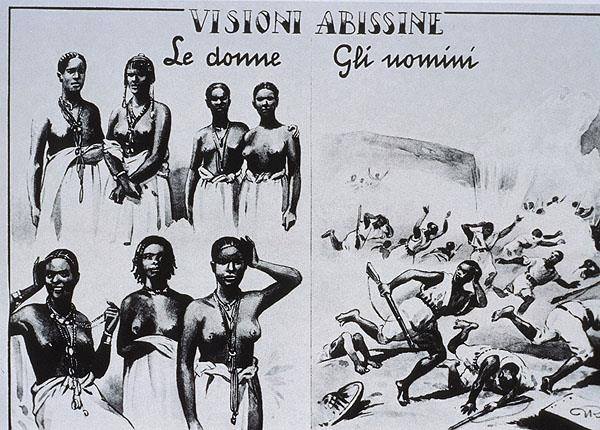 VISIONI ABISSINE
Le donne
Gli uomini